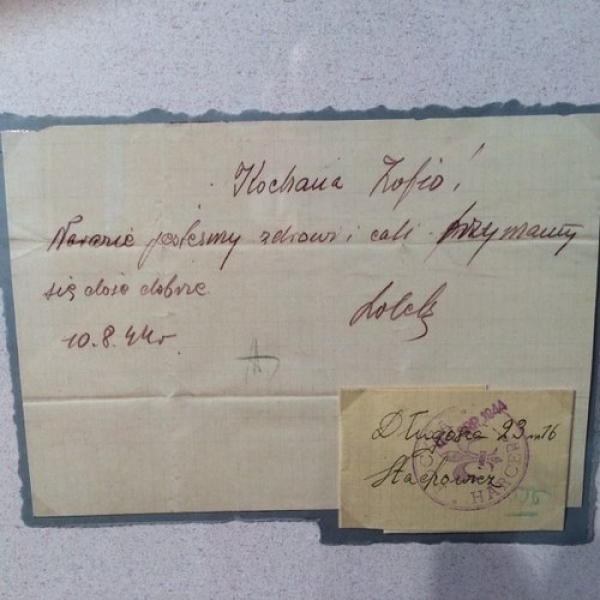 Kochana Zofio!
Narazie jesteśmy zdrowi i cali trzymamy
się dość dobrze
10.8.44r
Lolek
Długosza 23 m 16
Stachowicz
HARCER